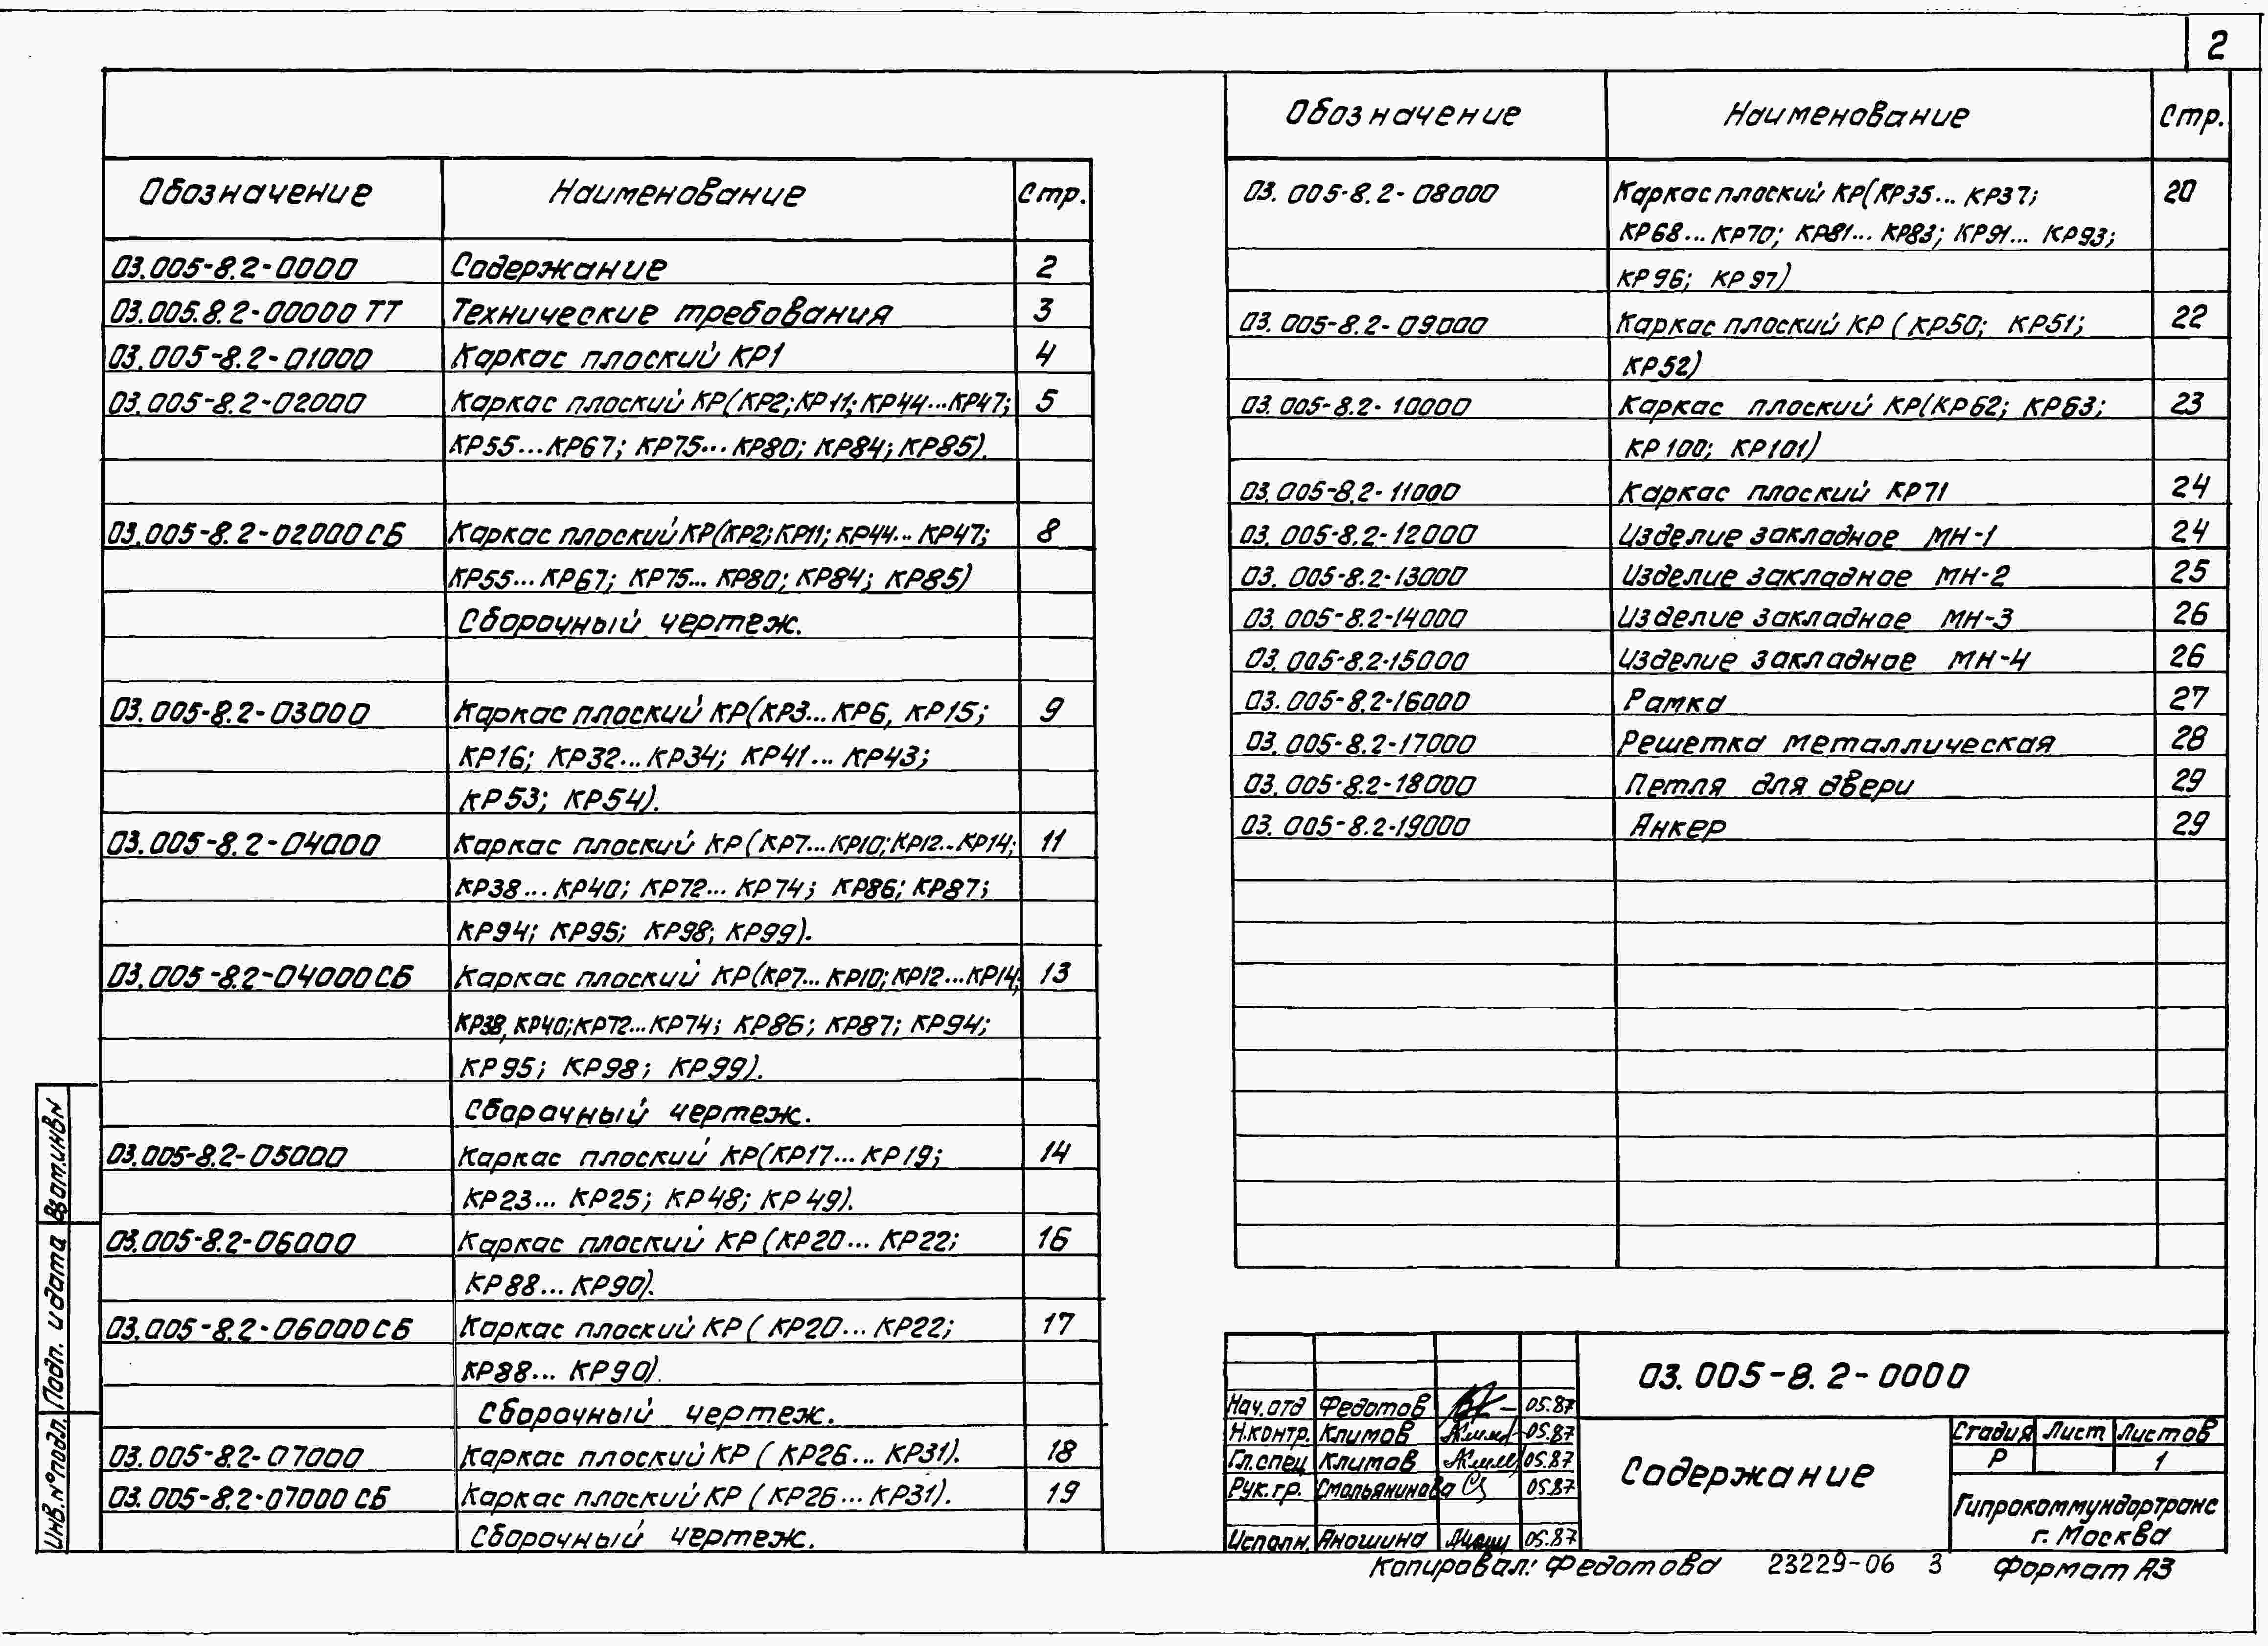 2
Обозначение Наименование Стр.
03.005-8.2-0000 Содержание 2
03.005.8.2-00000 ТТ Технические требования 3
03.005-8.2-01000 Каркас плоский КР1 4
03.005-8.2-02000 Каркас плоский КР(КР2;КР11;КР44...КР47; 5
КР55...КР67; КР75...КР80; КР84; КР85).
03.005-8.2-02000 СБ Каркас плоский КР(КР2;КР11; КР44... КР47; 8
КР55... КР67; КР75... КР80; КР84; КР85)
Сборочный чертеж.
03.005-8.2-03000 Каркас плоский КР(КР3... КР6, КР15; 9
КР16; КР32...КР34; КР41... КР43;
КР53; КР54).
03.005-8.2-04000 Каркас плоский КР(КР7...КР10;КР12...КР14; 11
КР38... КР40; КР72... КР74; КР86; КР87;
КР94; КР95; КР98; КР99).
03.005-8.2-04000 СБ Каркас плоский КР(КР7... КР10; КР12...КР14; 13
КР38, КР40;КР72...КР74; КР86; КР87; КР94;
КР95; КР98; КР99).
Сборочный чертеж.
03.005-8.2-05000 Каркас плоский КР(КР17... КР19; 14
КР23... КР25; КР48; КР49).
03.005-8.2-06000 Каркас плоский КР (КР20... КР22; 16
КР88... КР90).
03.005-8.2-06000 СБ Каркас плоский КР ( КР20... КР22; 17
КР88... КР90).
Сборочный чертеж.
03.005-8.2-07000 Каркас плоский КР ( КР26... КР31). 18
03.005-8.2-07000 СБ Каркас плоский КР ( КР26... КР31). 19
Сборочный чертеж.
Обозначение Наименование Стр.
03.005-8.2-08000 Каркас плоский КР(КР35... КР37; 20
КР68... КР70; КР81... КР83; КР91... КР93;
КР96; КР97)
03.005-8.2-09000 Каркас плоский КР ( КР50; КР51; 22
КР52)
03.005-8.2-10000 Каркас плоский КР(КР62; КР63; 23
КР100; КР101)
03.005-8.2-11000 Каркас плоский КР71 24
03.005-8.2-12000 Изделие закладное МН-1 24
03.005-8.2-13000 Изделие закладное МН-2 25
03.005-8.2-14000 Изделие закладное МН-3 26
03.005-8.2-15000 Изделие закладное МН-4 26
03.005-8.2-16000 Рамка 27
03.005-8.2-17000 Решетка металлическая 28
03.005-8.2-18000 Петля для двери 29
03.005-8.2-19000 Анкер 29
Взам.инв№
Подп. и дата
Инв.№подл.
03.005-8.2-0000
Нач.отд Федотов 05.87
Н.контр. Климов 05.87
Гл.спец Климов 05.87
Рук.гр. Смольянинова 05.87
Исполн. Яношина 05.87
Содержание
Стадия Лист Листов
Р 1
Гипрокоммундортранс
г. Москва
Копировал: Федотова 23229-06 3 Формат А3